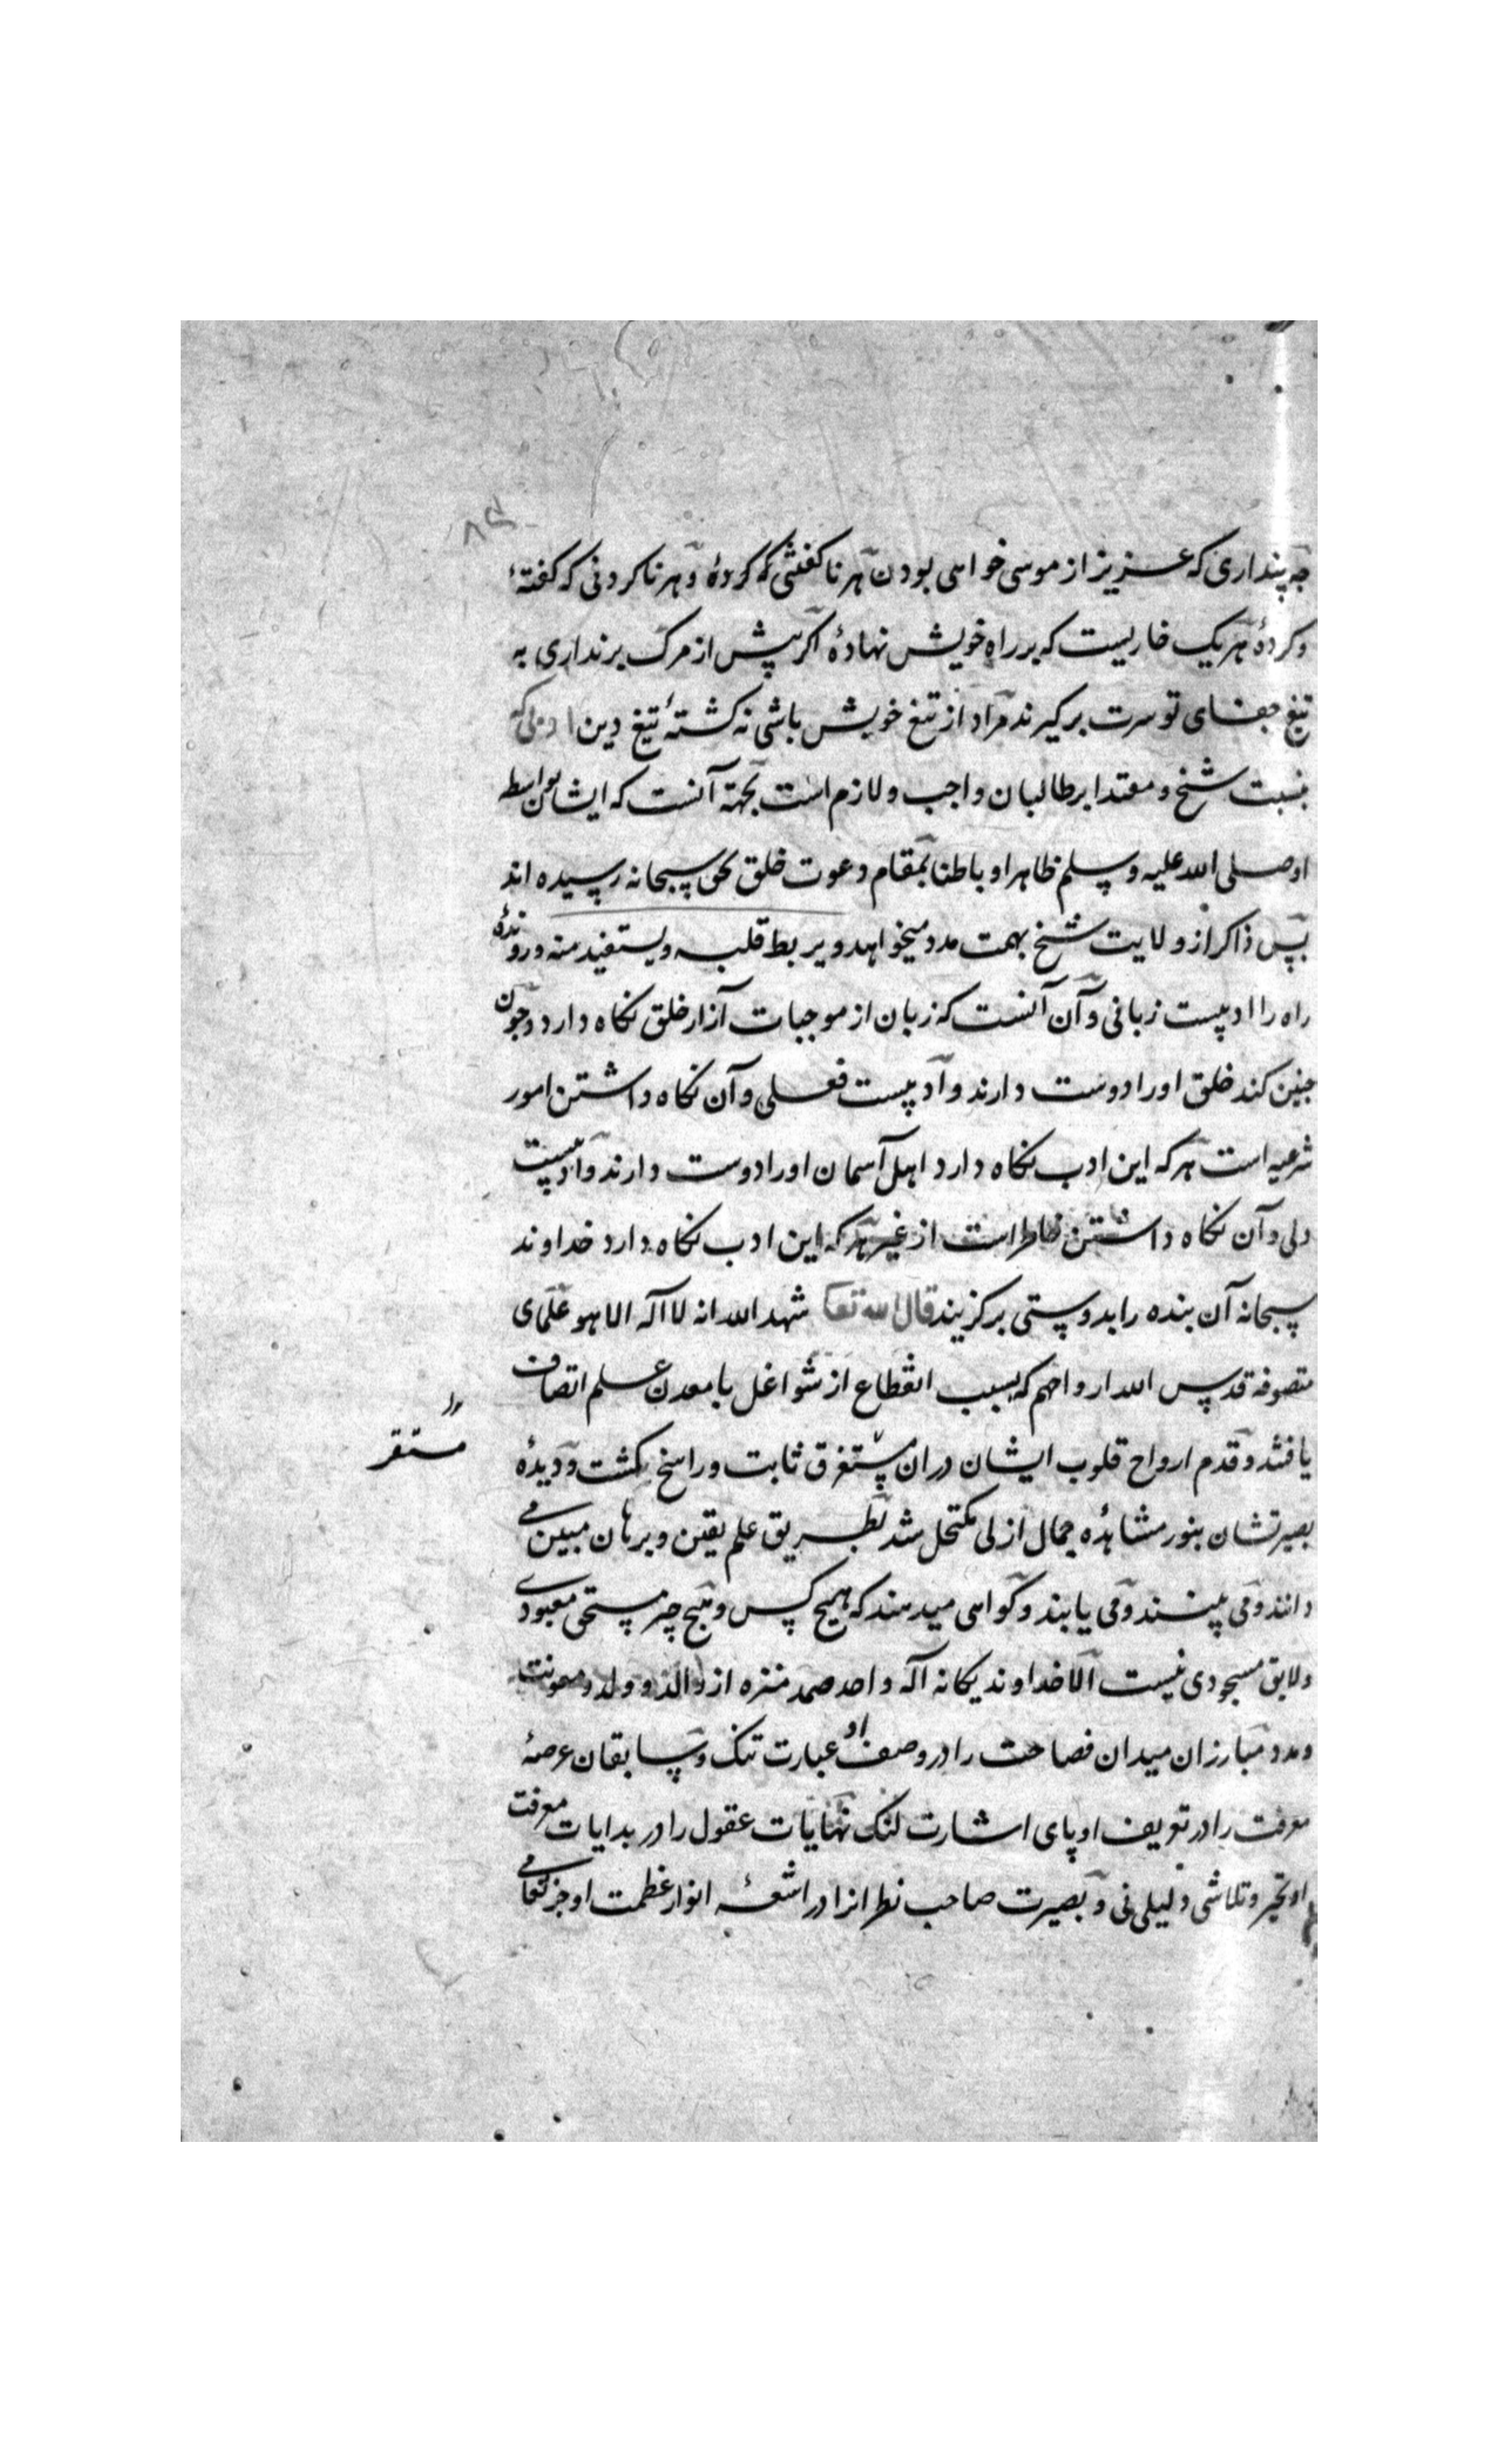 چه پنداری که عزیز از موسی خواهی بودن هر ناکفتنی که کردهٔ و هر ناکردنی که کفتهٔ
و کردهٔ هر یک خاریست که بر راه خویش نهادهٔ اکر پیش از مرک برنداری به
تیغ جفای تو سرت برکیرند مراد از تیغ خویش باشی نه کشتهٔ تیغ دین
بنسبت شیخ و مقتدا بر طالبان واجب و لازم است بجهة آنست که ایشان بواسطه
او صلی الله علیه وسلم ظاهرا و باطنا بمقام دعوت خلق بحق سبحانه رسیده اند
پس ذاکر از ولایت شیخ بهمت مدد میخواهد و یربط قلبه و یستفید منه و روندهٔ
راه را ادبیست زبانی و آن آنست که زبان از موجبات آزار خلق نکاه دارد و چون
چنین کند خلق او را دوست دارند و ادبیست فعلی و آن نکاه داشتن امور
شرعیه است هر که این ادب نکاه دارد اهل آسمان او را دوست دارند و ادبیست
دلی و آن نکاه داشتن خاطر است از غیر هر که این ادب نکاه دارد خداوند
سبحانه آن بنده را بدوستی برکزیند قال الله تعا شهد الله انه لا اله الا هو علمای
متصوفه قدس الله ارواحهم که بسبب انقطاع از شواغل با معدن علم اتصاف
یافتند و قدم ارواح قلوب ایشان دران مستغرق ثابت و راسخ کشت و دیدهٔ
مستقر
بصیرتشان بنور مشاهدهٔ جمال ازلی مکتحل شد بطریق علم یقین و برهان مبین می
دانند و می بینند و می یابند و کواهی میدهند که هیچ کس و هیچ چیز مستحق معبودی
و لایق مسجودی نیست الا خداوند یکانه اله واحد صمد منزه از والد و ولد و معونت
و مدد مبارزان میدان فصاحت را در وصف او عبارت تنک و سابقان عرصهٔ
معرفت را در تعریف او پای اشارت لنک نهایات عقول را در بدایات معرفت
او تحیر و تلاشی دلیلی نی و بصیرت صاحب نظرانرا در اشعهٔ انوار عظمت او جز تعامی